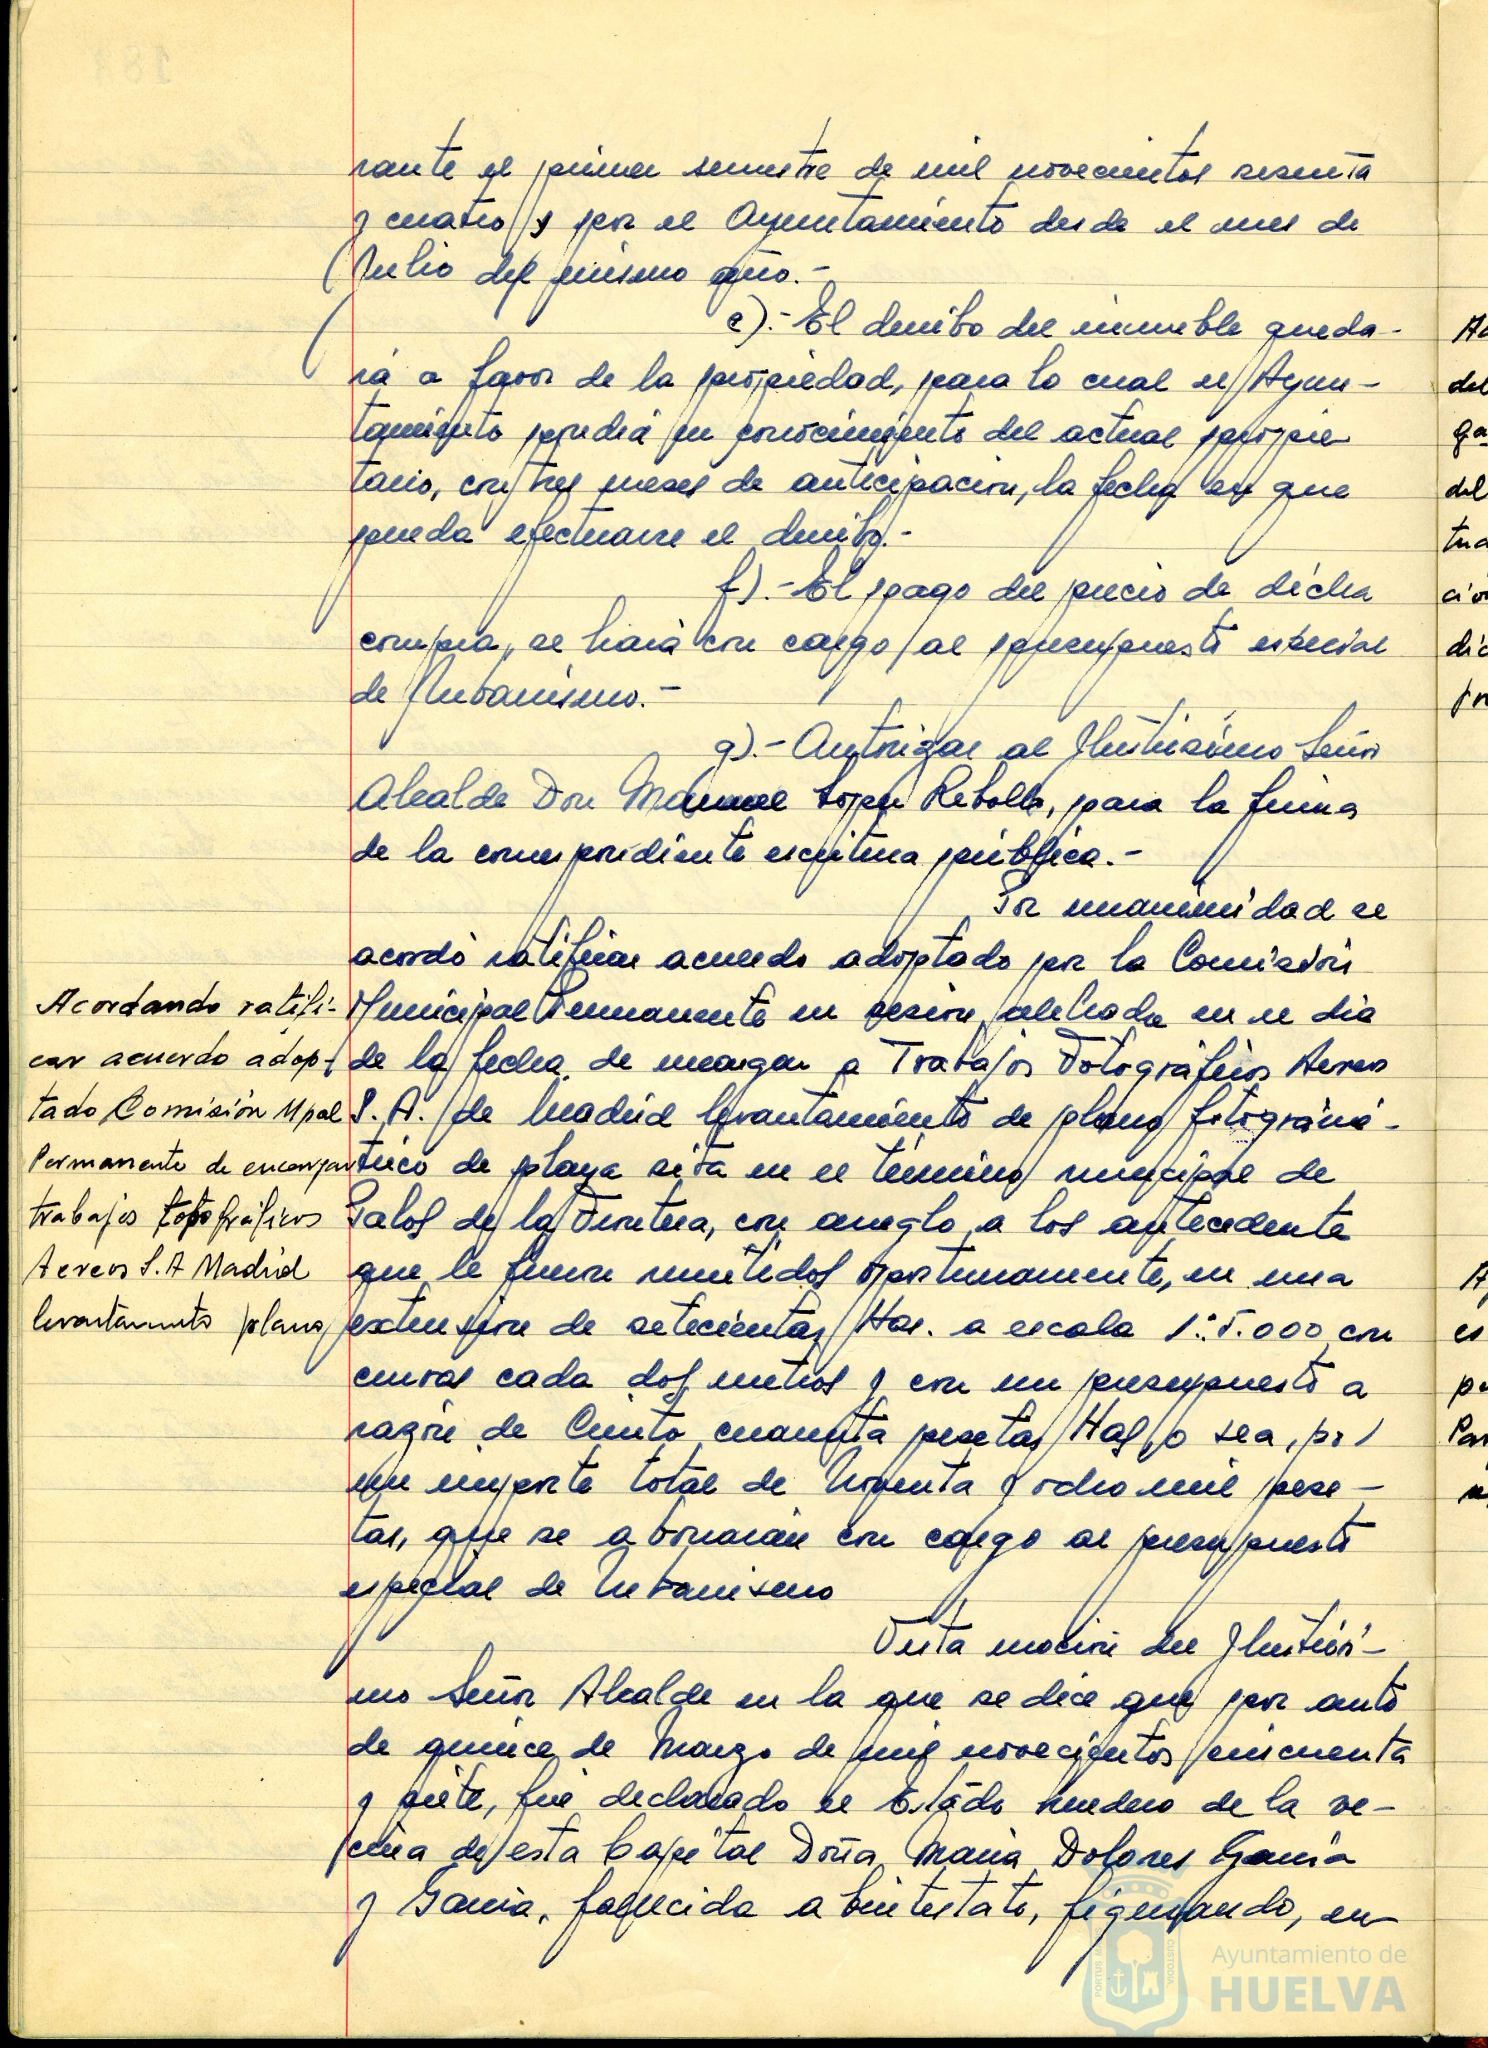 rante el primer semestre de mil novecientos sesenta
y cuatro y por el Ayuntamiento desde el mes de
Julio del mismo año.-
e).- El derribo del inmueble queda-
rá a favor de la propiedad, para lo cual el Ayun-
tamiento pondrá en conocimiento del actual propie
tario, con tres meses de anticipacion, la fecha en que
pueda efectuarse el derribo.-
f).- El pago del precio de dicha
compra, se hará con cargo al presupuesto especial
de Urbanismo.-
g).- Autorizar al Ilustrisimo Señor
Alcalde Don Manuel Lopez Rebollo, para la firma
de la correspondiente escritura pública.-
Por unanimidad se
acordó ratificar acuerdo adoptado por la Comisión
Acordando ratifi-
car acuerdo adop-
tado Comisión Mpal
Permanente de encargar
trabajos fotográficos
Aereos S.A Madrid
levantamiento plano
Municipal Permanente en sesion celebrada en el dia
de la fecha, de encargar a Trabajos Fotográficos Aereos
S. A. de Madrid levantamiento de plano fotogramé-
trico de playa sita en el término municipal de
Palos de la Frontera, con arreglo a los antecedente
que le fueron remitidos oportunamente, en una
extension de setecientas Has. a escala 1:5.000 con
curvas cada dos metros y con un presupuesto a
razón de Ciento cuarenta pesetas Has, o sea, por
un importe total de Noventa y ocho mil pese-
tas, que se abonarán con cargo al presupuesto
especial de Urbanismo
Vista mocion del Ilustrisi-
mo Señor Alcalde en la que se dice que por auto
de quince de Marzo de mil novecientos cincuenta
y siete, fué declarado el Estado heredero de la ve-
cina de esta Capital Doña Maria Dolores Garcia
y Garcia, fallecida abintestato, figurando, en-
Ayuntamiento de
HUELVA